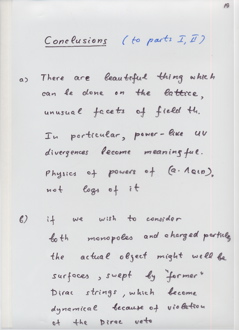 Conclusions (to parts I, II)
a) There are beautiful thing which
can be done on the lattice,
unusual facets of field th.
In particular, power-like UV
divergences become meaningful.
Physics of powers of (a·ΛQCD),
not logs of it
b) if we wish to consider
both monopoles and charged particles
the actual object might well be
surfaces, swept by "former"
Dirac strings, which become
dynamical because of violation
of the Dirac veto